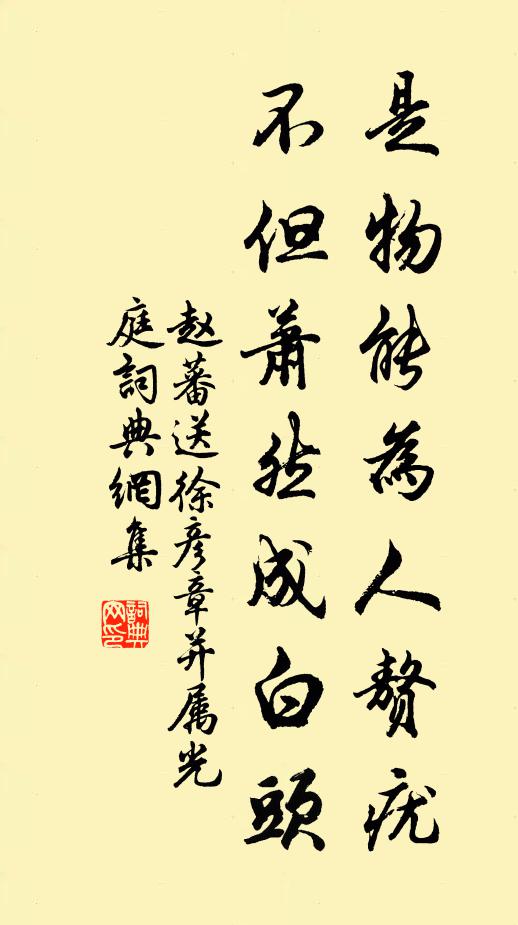 是物能為人贅疣
不但蕭然成白頭
赵蕃送徐彦章并属光
庭詞典網集
詞典網印